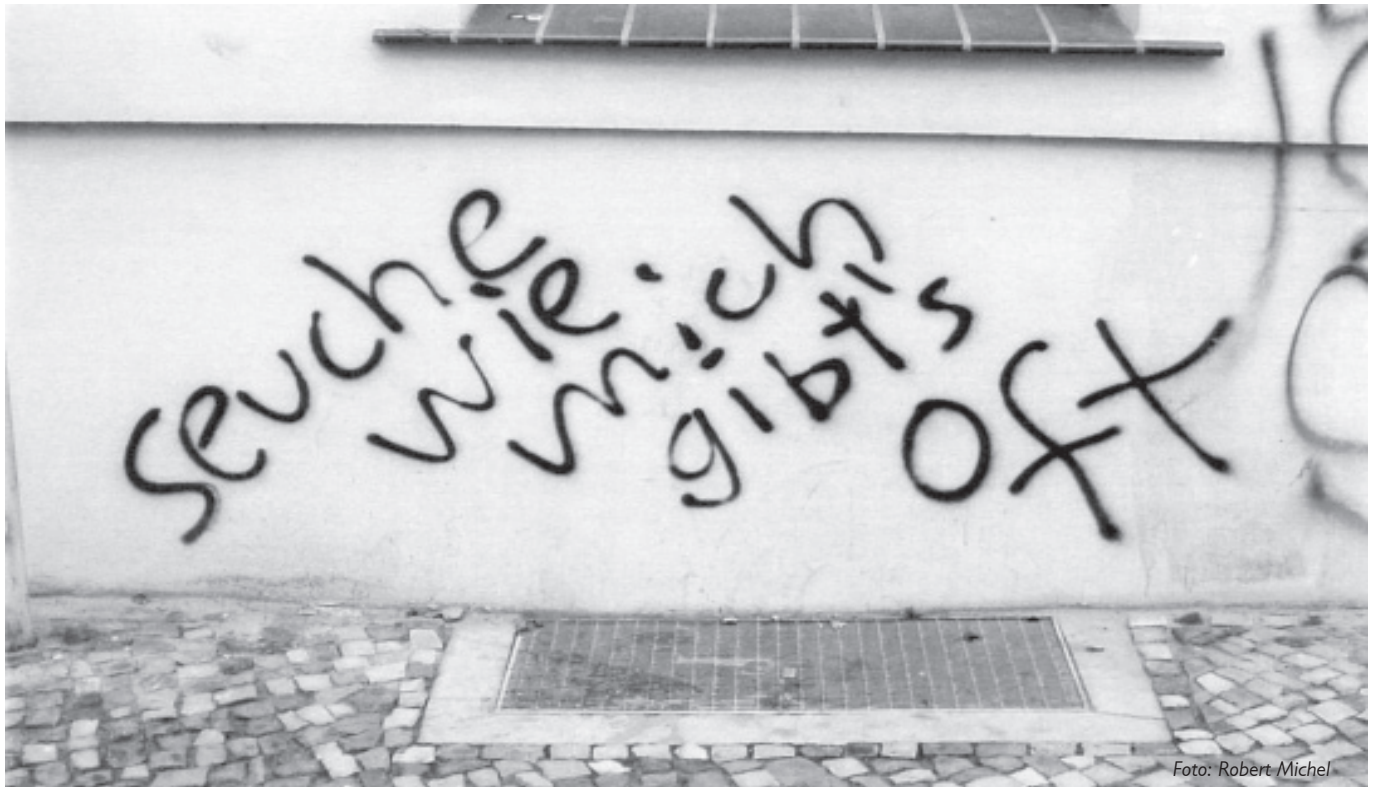 seuche
wie
mich
gibt's
oft
Foto: Robert Michel